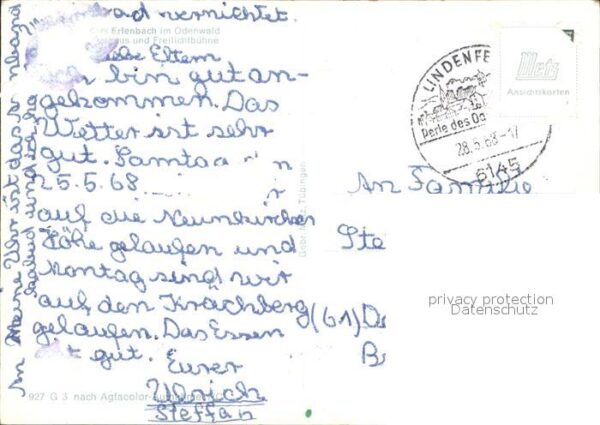 ad vernichtet.
Erlenbach im Odenwald
und Freilichtbühne
Liebe Eltern
ich bin gut an-
gekommen. Das
Wetter ist sehr
gut. Samtag
25.5.68
auf die Neunkircher
Höhe gelaufen und
Montag sind wir
auf den Krächberg
gelaufen. Das Essen
ist gut.
Eurer
Ulrich
Steffan
Meine Uhr ist das
927 G 3 nach Agfacolor-
Gebr. Metz, Tübingen
LINDENFE
Perle des Od
28.5.68-17
6145
Metz
Ansichtskarten
An Familie
Ste
(61) Da
B
privacy protection
Datenschutz